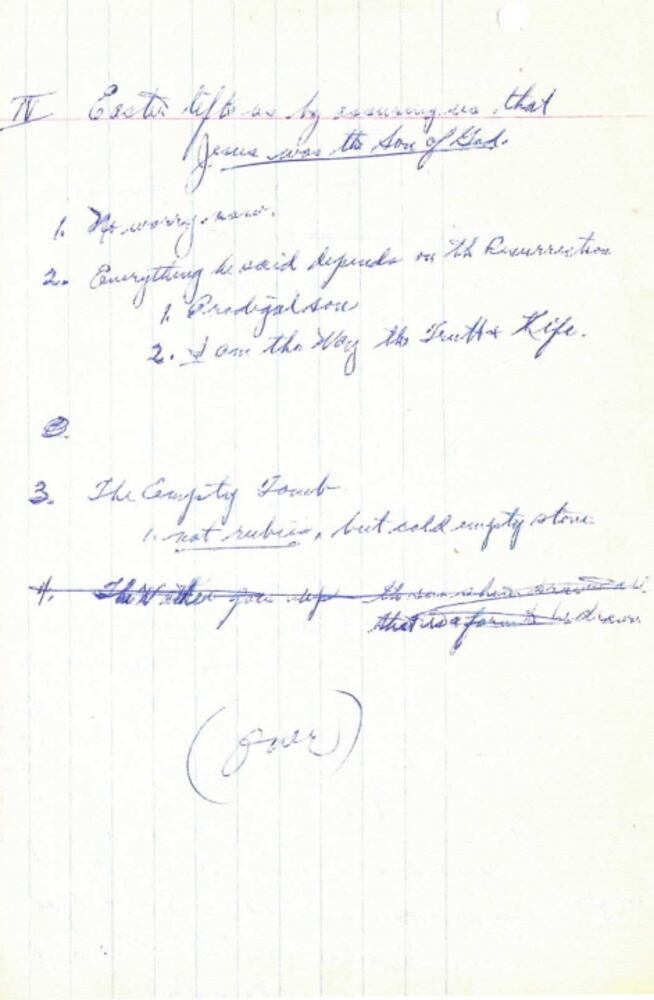 IV Easter lifts us by assuring us that
Jesus was the Son of God.
1. No worry now.
2. Everything he said depends on th Resurrection
1. Prodigal son
2. I am the Way the Truth & Life.
3. The Empty Tomb
1. not rubies, but cold empty stone
4. The
that is a form to be drawn
(over)